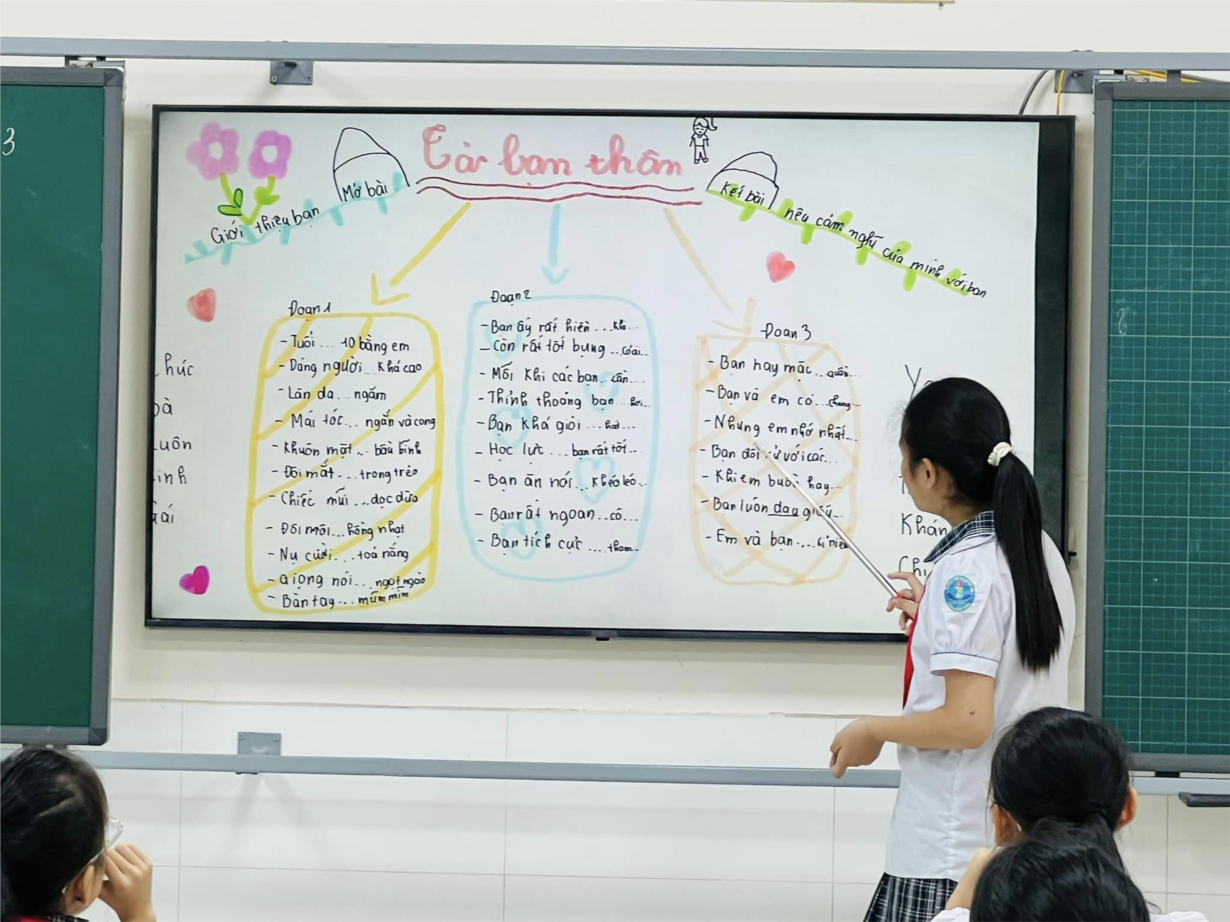 3
Tả bạn thân
Mở bài
Giới thiệu bạn
Kết bài
nêu cảm nghĩ của mình với bạn
Đoạn 1
- Tuổi ... 10 bằng em
- Dáng người ... khá cao
- Làn da ... ngăm
- Mái tóc ... ngắn và cong
- Khuôn mặt ... bầu bĩnh
- Đôi mắt ... trong trẻo
- Chiếc mũi ... dọc dừa
- Đôi môi ... hồng nhạt
- Nụ cười ... toả nắng
- Giọng nói ... ngọt ngào
- Bàn tay ... mũm mĩm
Đoạn 2
- Bạn ấy rất hiền ... khi ...
- Còn rất tốt bụng ...
- Mỗi khi các bạn ... cần ...
- Thỉnh thoảng bạn ... hơi ...
- Bạn khá giỏi ... hát ...
- Học lực ... bạn rất tốt ...
- Bạn ăn nói ... khéo léo ...
- Bạn rất ngoan ... cô ...
- Bạn tích cực ... tham ...
Đoan 3
- Bạn hay mặc ... quần ...
- Bạn và em có ... chung ...
- Nhưng em nhớ nhất ...
- Bạn đối xử với các ...
- Khi em buồn hay ...
- Bạn luôn dạy giúp ...
- Em và bạn ... kỉ niệm
húc
à
uôn
inh
ái
Khán
Chi